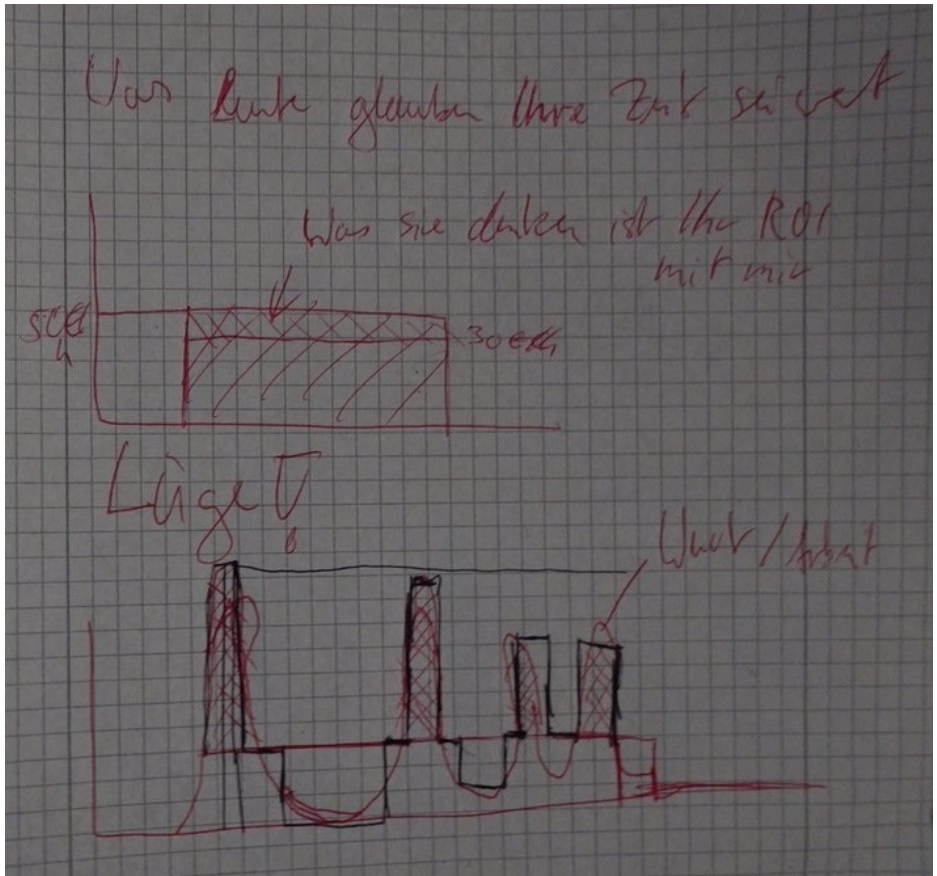 Was Leute glauben Ihre Zeit sei wert
Was sie denken ist Ihr ROI
mit mir
50€/h
30€/h
Lüge!
Wert/Arbeit